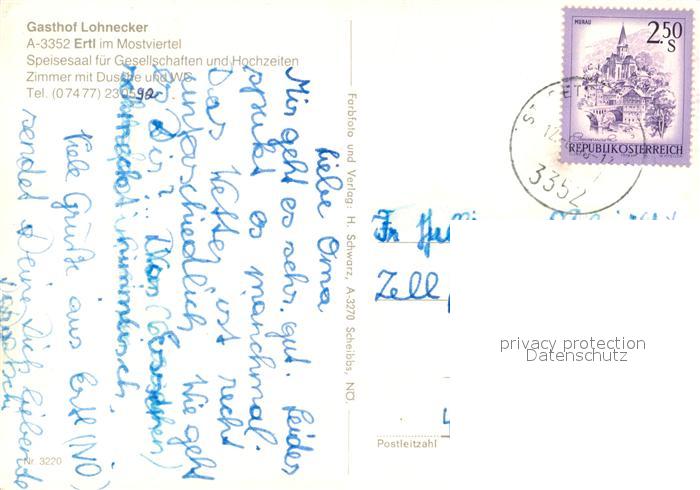 Gasthof Lohnecker
A-3352 Ertl im Mostviertel
Speisesaal für Gesellschaften und Hochzeiten
Zimmer mit Dusche und WC
Tel. (0 74 77) 23
Liebe Oma
Mir geht es sehr gut. Leider
spukt es manchmal.
Das Wetter ist recht
unterschiedlich. Wie geht
es Dir? Das
schmeckt himmlisch.
Viele Grüße aus Ertl (NÖ)
sendet Deine Dich liebende
Nr. 3220
Farbfoto und Verlag: H. Schwarz, A-3270 Scheibbs, NÖ.
MURAU
2.50
S
REPUBLIK ÖSTERREICH
3352
Fr
Zell
Postleitzahl
privacy protection
Datenschutz